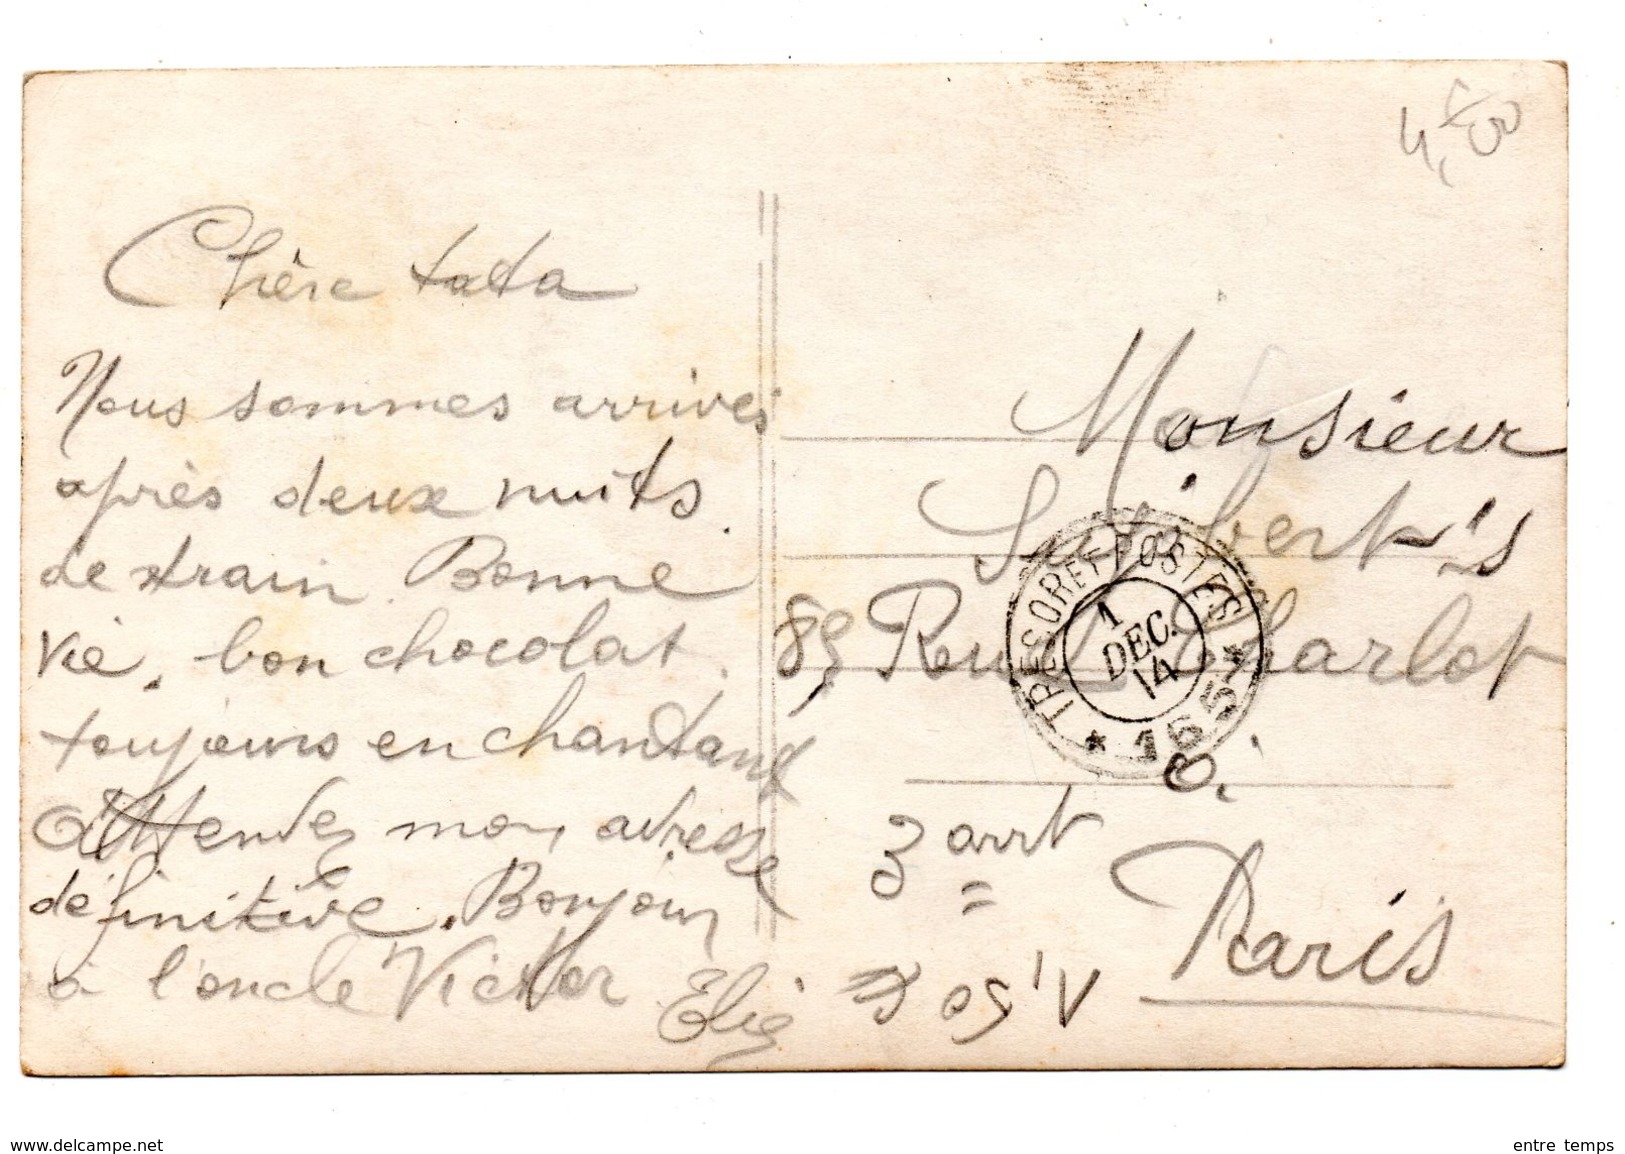 Chère tata
Nous sommes arrivés
après deux nuits
de train. Bonne
vie, bon chocolat.
toujours en chantant
Attendez mon adresse
définitive. Bonjour
à l'oncle Victor
Elie
Monsieur
89 Rue Charlot
3 arrt
Paris
TRESOR ET POSTES
1
DEC.
14
* 165 *
delcampe.net
entre temps